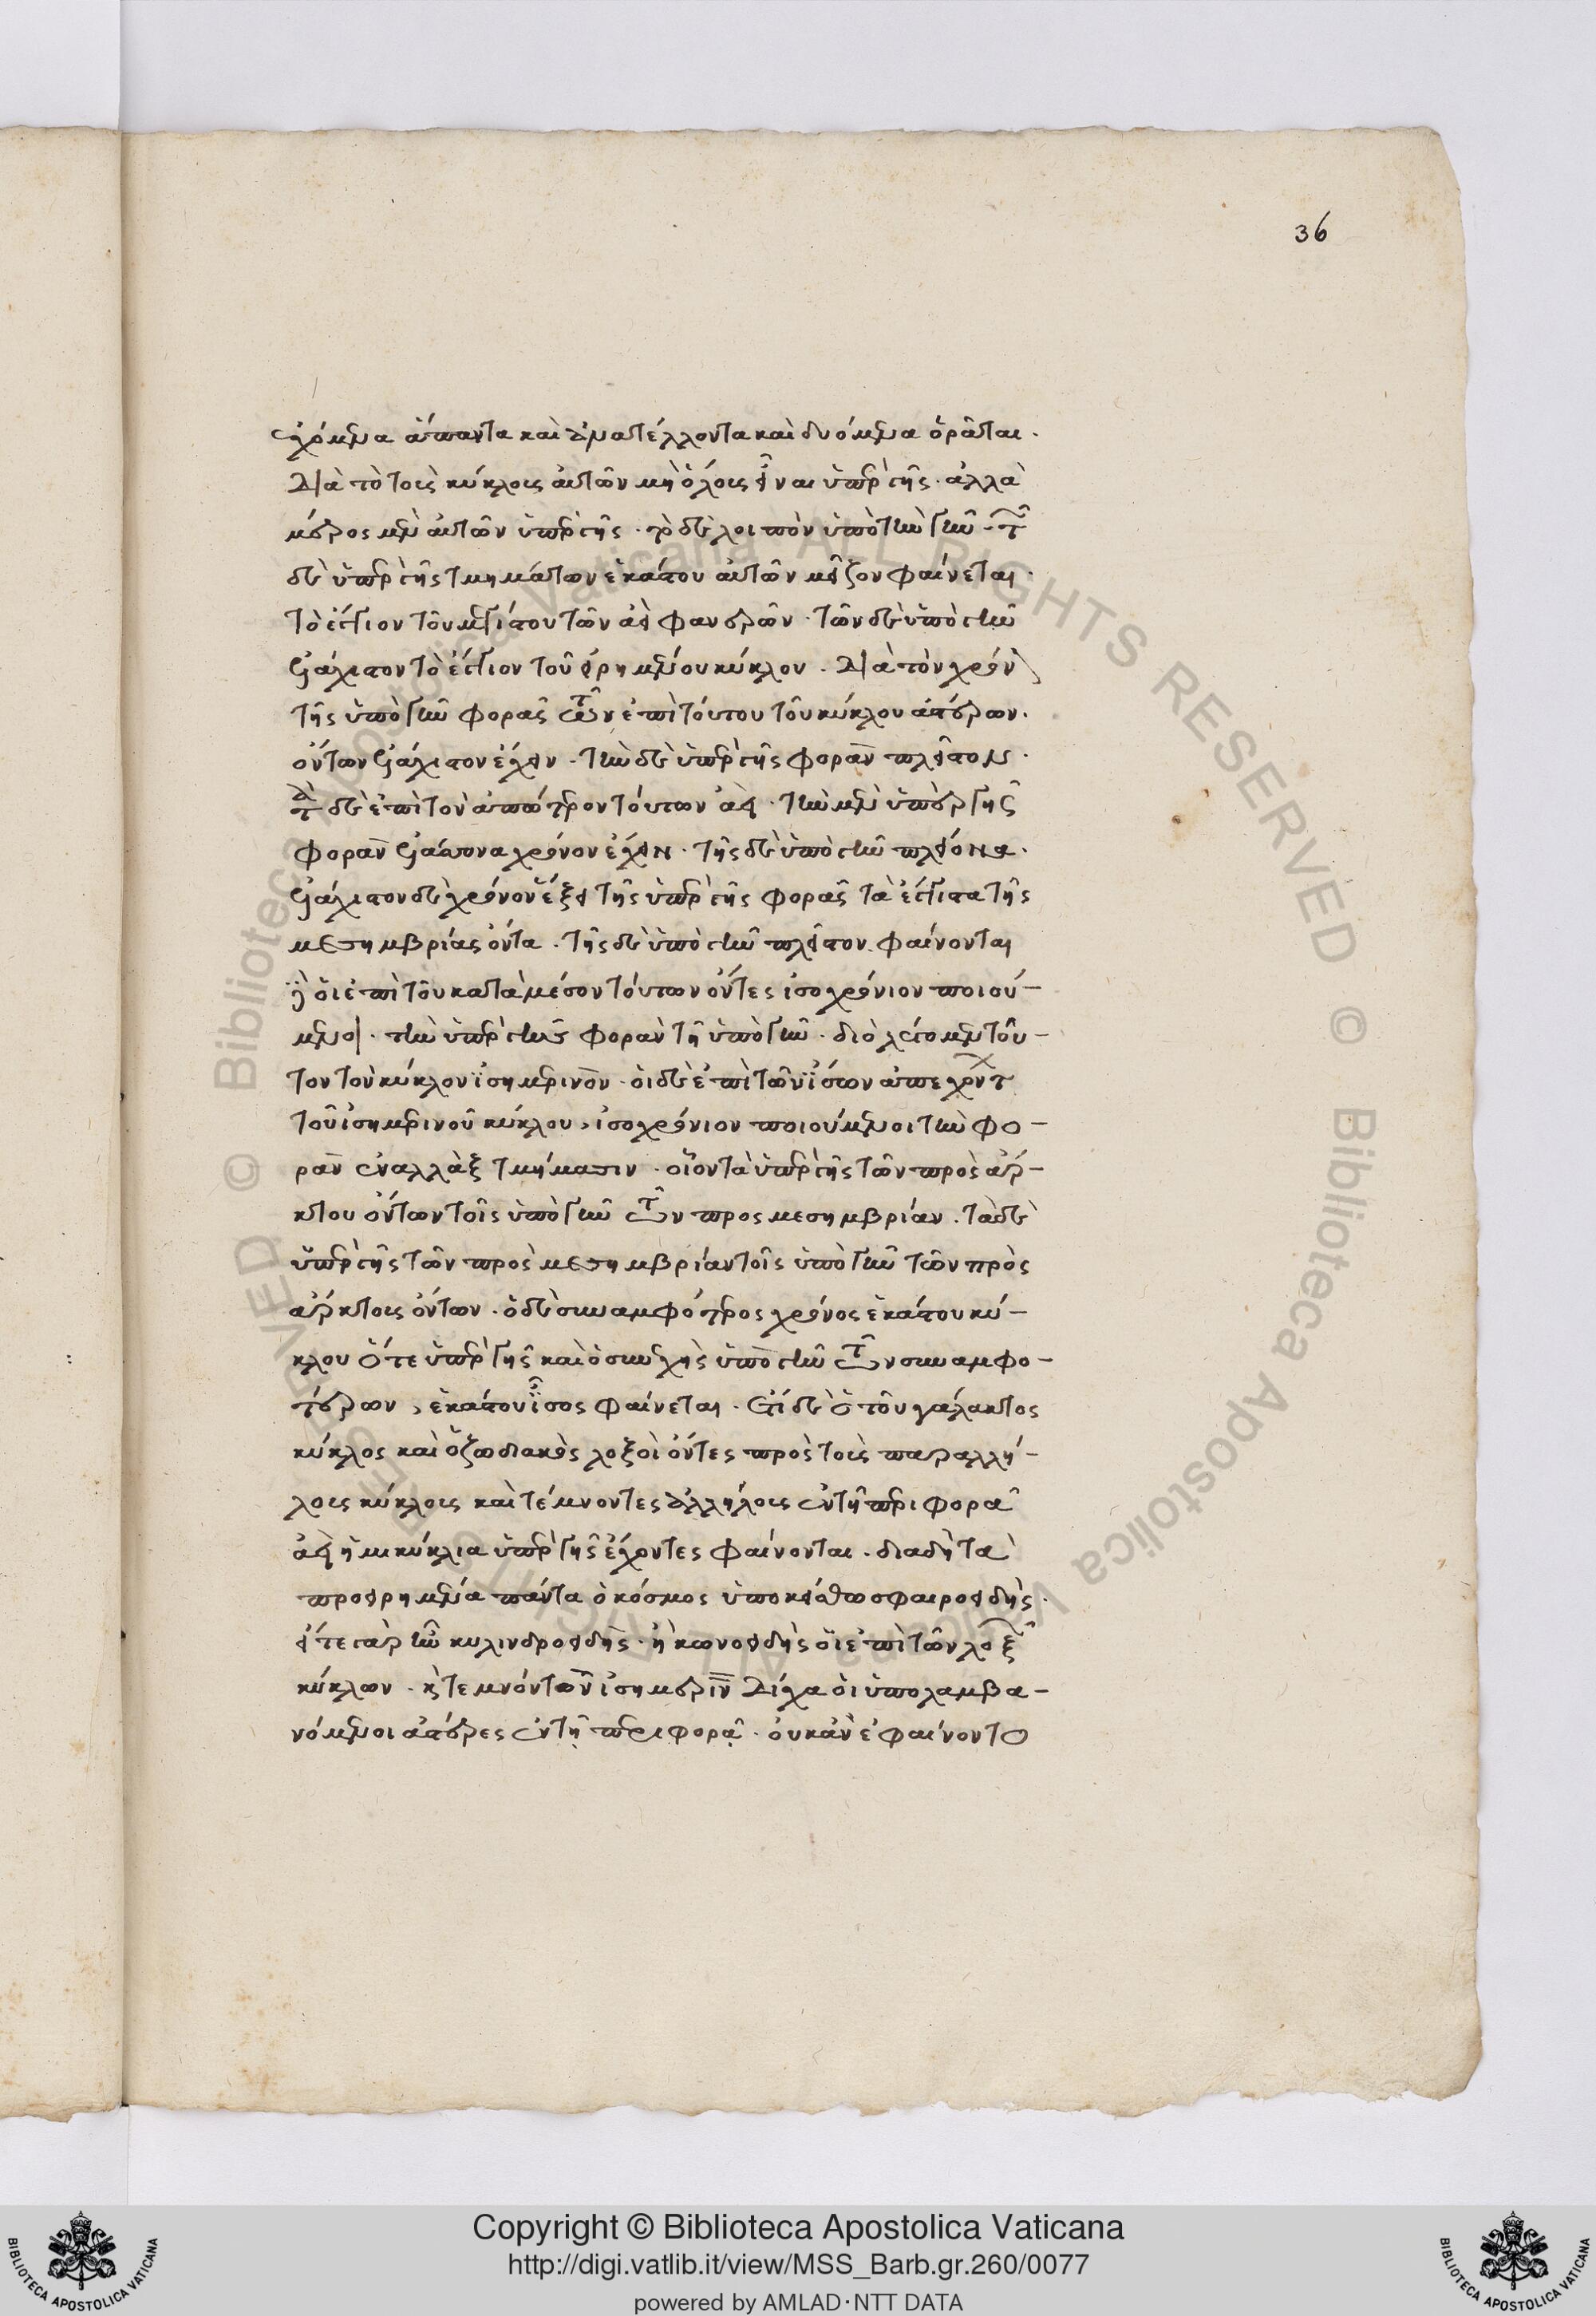 36
ἐχόμενα ἅπαντα καὶ ἀνατέλλοντα καὶ δυόμενα ὁρᾶται.
Διὰ τὸ τοὺς κύκλους αὐτῶν μὴ ὅλους εἶναι ὑπὲρ γῆς. ἀλλὰ
μέρος μὲν αὐτῶν ὑπὲρ γῆς. τὸ δὲ λοιπὸν ὑπὸ τὴν γῆν. τῶν
δὲ ὑπὲρ γῆς τμημάτων ἑκάστου αὐτῶν μεῖζον φαίνεται.
τὸ ἔγγιον τοῦ μεγίστου τῶν ἀεὶ φανερῶν. τῶν δὲ ὑπὸ γῆν
ἐλάχιστον τὸ ἔγγιον τοῦ εἰρημένου κύκλου. Διὰ τὸν χρόνον
τῆς ὑπὸ γῆν φορᾶς τῶν ἐπὶ τούτου τοῦ κύκλου ἀστέρων.
ὄντων ἐλάχιστον ἔχειν. τὴν δὲ ὑπὲρ γῆς φορὰν πλεῖστον.
τὰ δὲ ἐπὶ τὸν ἀπώτερον τούτων ἀεὶ. τὴν μὲν ὑπὲρ γῆς
φορὰν ἐλάσσονα χρόνον ἔχειν. τῆς δὲ ὑπὸ γῆν πλείονα.
ἐλάχιστον δὲ χρόνον ἕξει τῆς ὑπὲρ γῆς φορᾶς τὰ ἔγγιστα τῆς
μεσημβρίας ὄντα. τῆς δὲ ὑπὸ γῆν πλεῖστον. φαίνονται
δὲ οἱ ἐπὶ τοῦ κατὰ μέσον τούτων ὄντες ἰσοχρόνιον ποιού-
μενοι. τὴν ὑπὲρ γῆν φορὰν τῇ ὑπὸ γῆν. διὸ λέγομεν τοῦ-
τον τὸν κύκλον ἰσημερινόν. οἱ δὲ ἐπὶ τῶν ἴσων ἀπεχόντων
τοῦ ἰσημερινοῦ κύκλου, ἰσοχρόνιον ποιούμενοι τὴν φο-
ρὰν ἐναλλὰξ τμήμασιν. οἷον τὰ ὑπὲρ γῆς τῶν πρὸς ἄρ-
κτου ὄντων τοῖς ὑπὸ γῆν τῶν προς μεσημβρίαν. τὰ δὲ
ὑπὲρ γῆς τῶν προς μεσημβρίαν τοῖς ὑπὸ γῆν τῶν πρὸς
ἄρκτοις ὄντων. ὁ δὲ συναμφότερος χρόνος ἑκάστου κύ-
κλου ὅ τε ὑπὲρ γῆς καὶ ὁ συνεχὴς ὑπὸ γῆν τῶν συναμφο-
τέρων, ἑκάστου ἴσος φαίνεται. ἔτι δὲ ὁ τοῦ γάλακτος
κύκλος καὶ ὁ ζωδιακὸς λοξοὶ ὄντες πρὸς τοὺς παραλλή-
λους κύκλους καὶ τέμνοντες ἀλλήλους ἐν τῇ περιφορᾷ
ἀεὶ ἡμικύκλια ὑπὲρ γῆς ἔχοντες φαίνονται. διαδὴ τὰ
προειρημένα πάντα ὁ κόσμος ὑποκείσθω σφαιροειδής.
εἴ τε γὰρ ἦν κυλινδροειδὴς. ἢ κωνοειδὴς οἱ ἐπὶ τῶν λοξῶν
κύκλων. καὶ τεμνόντων ἰσημερινὸν δίχα οἱ ὑπολαμβα-
νόμενοι ἀστέρες ἐν τῇ περιφορᾷ. οὐκ ἂν ἐφαίνοντο
Copyright © Biblioteca Apostolica Vaticana
http://digi.vatlib.it/view/MSS_Barb.gr.260/0077
powered by AMLAD·NTT DATA